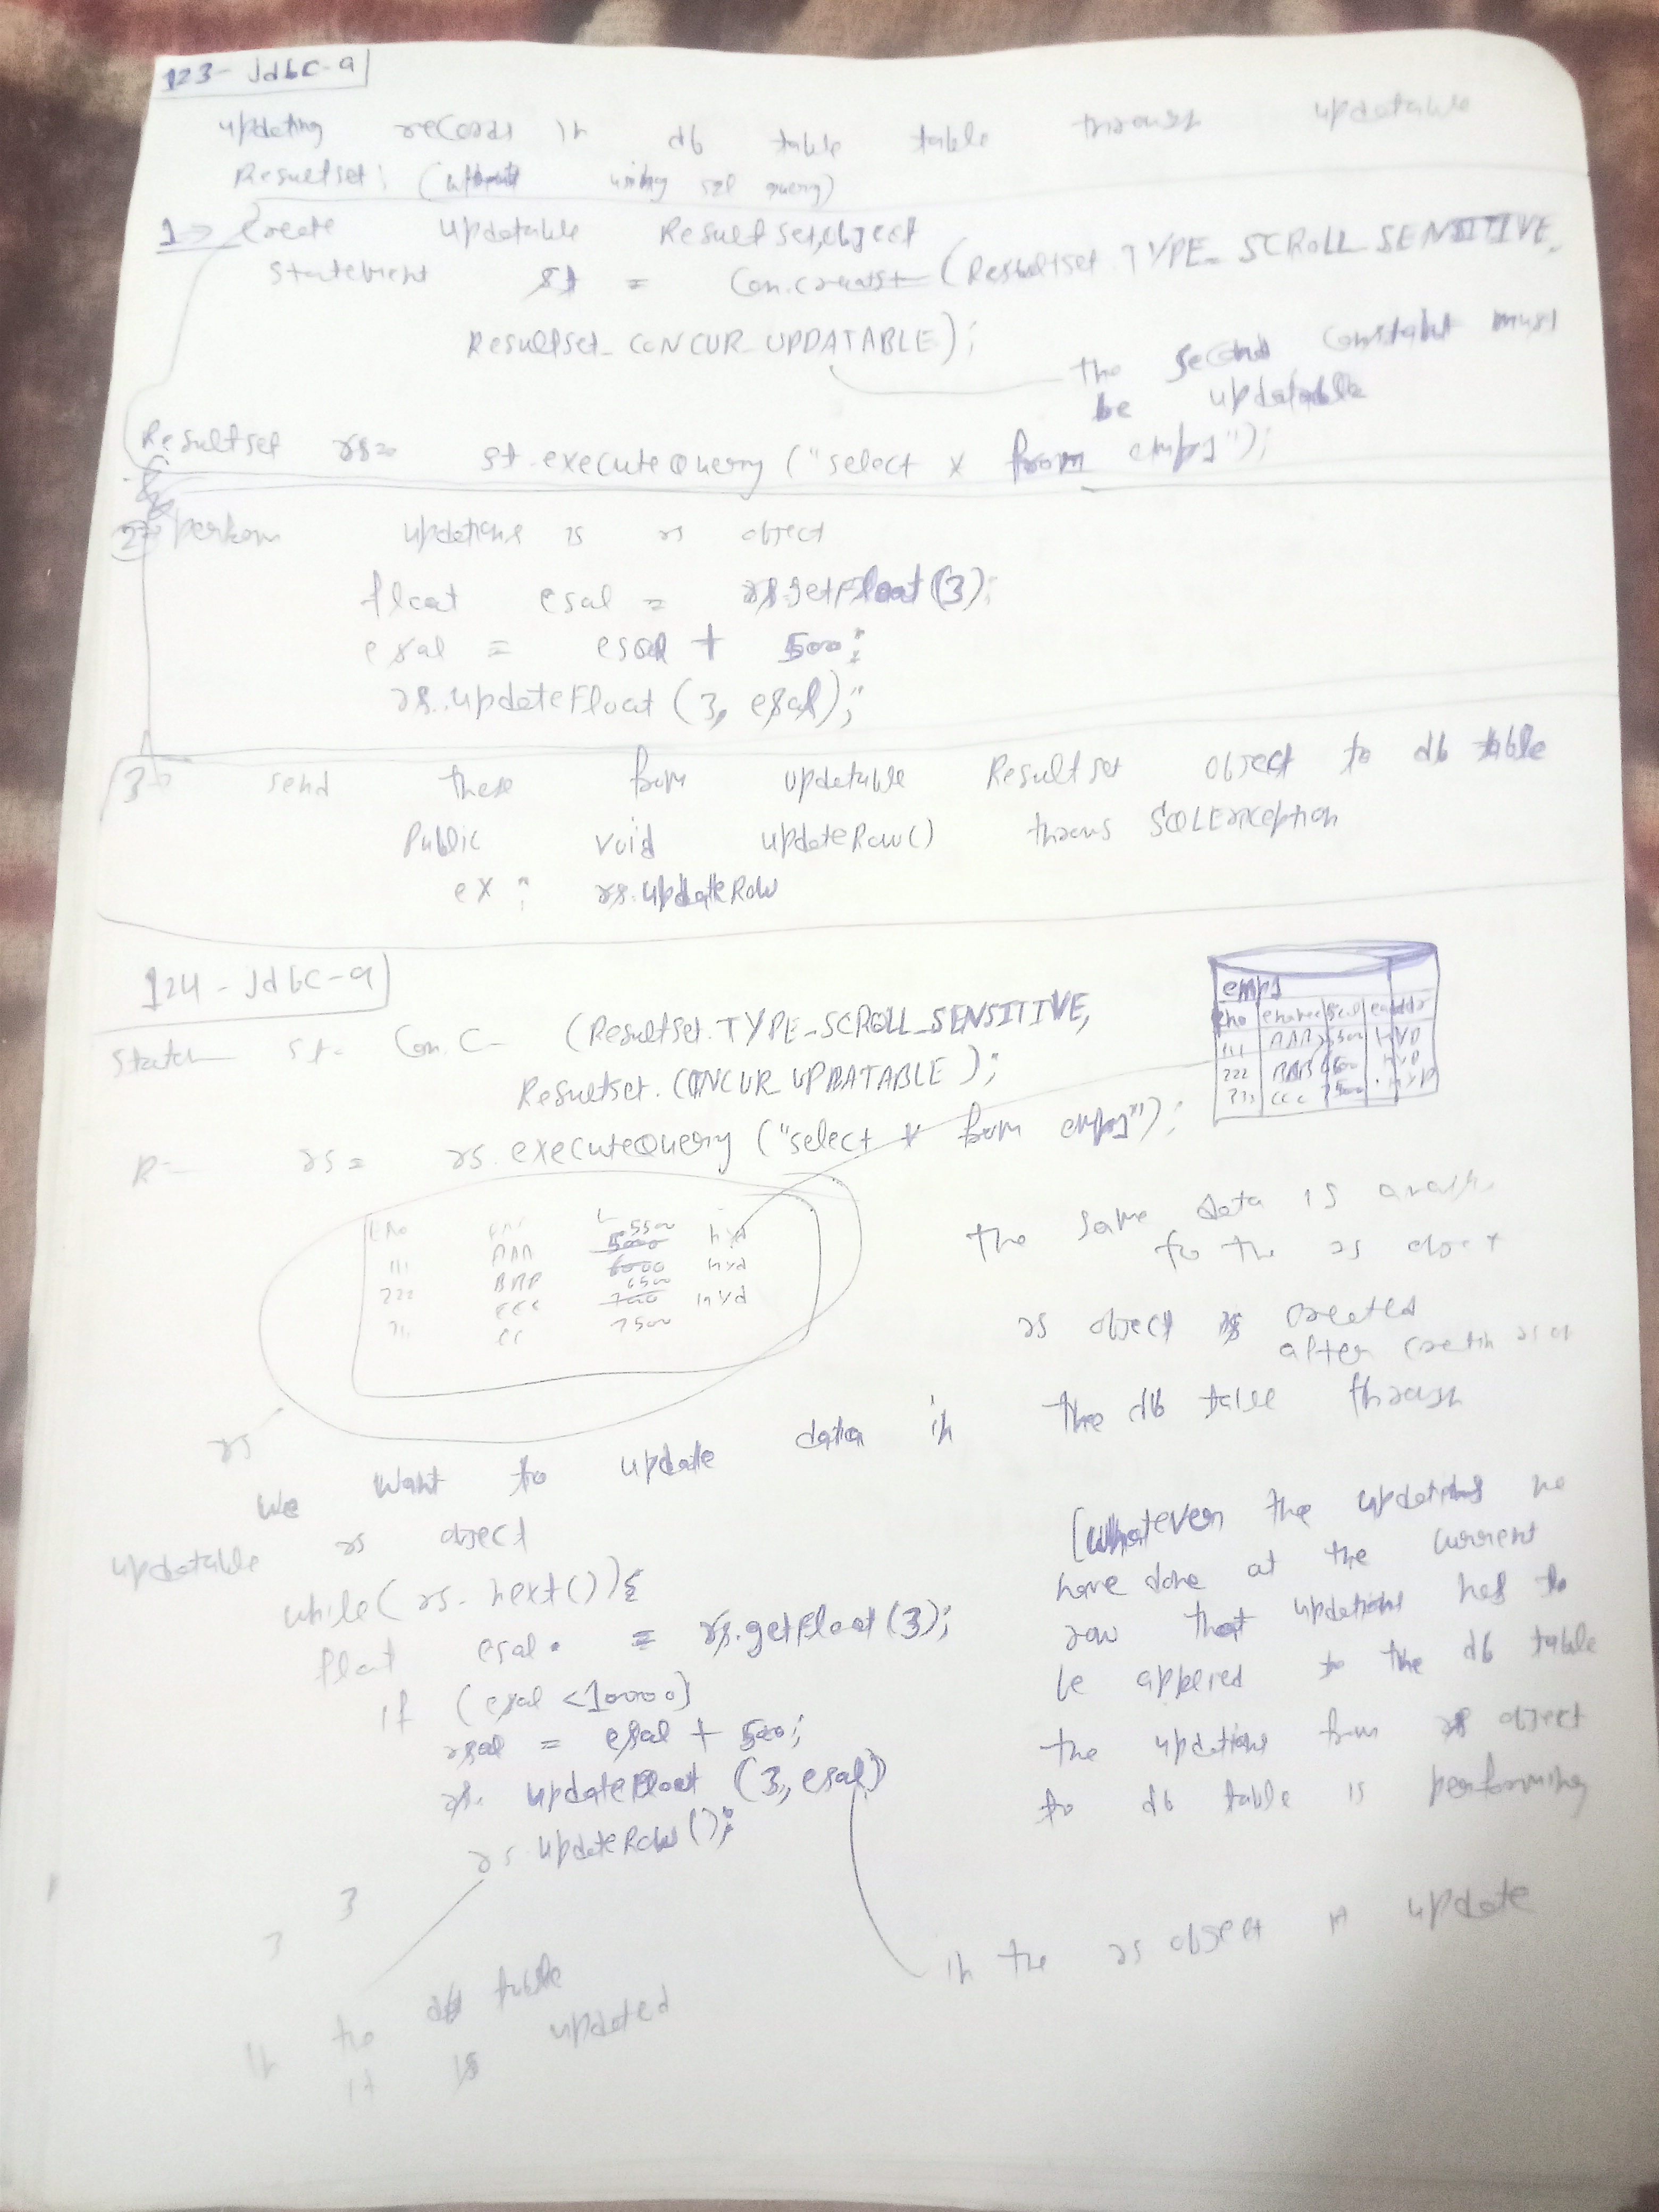 123- Jdbc-9
updating records in db table table through updatable
Resultset: (without using sql query)
1→ Create updatable Resultset object
Statement st = Con.creatst (Resultset.TYPE_SCROLL_SENSITIVE,
Resultset_CONCUR_UPDATABLE);
the second constant must
be updatable
Resultset rs= st.executeQuery ("select * from emp1");
2→ perform updations is rs object
float esal = rs.getFloat (3);
esal = esal + 500;
rs.updateFloat (3, esal);
3→ send these from updatable Resultset object to db table
Public void updateRow() throws SQLException
ex: rs.updateRow
124-Jdbc-9
emp1
eno ename esal eaddr
111 AAA 5500 HYD
222 BBB 6500 HYD
333 CCC 7500 HYD
Statem st= Con.C- (Resultset.TYPE_SCROLL_SENSITIVE,
Resultset.CONCUR_UPDATABLE);
R- rs= rs.executeQuery ("select * from emp1");
5500
eno 5000 hyd
111 AAA 6000 hyd
222 BBB 6500 hyd
CCC 7000
333 CC 7500
rs
the same data is
to the rs object
rs object is created
after
We want to update data in the db table through
updatable rs object
while(rs.next()){
float esal = rs.getFloat (3);
if (esal <10000)
esal = esal + 500;
rs.updateFloat (3, esal)
rs.updateRow();
}
}
[Whatever the updations we
have done at the current
row that updations has to
be applied to the db table
the updations from rs object
to db table is performing
in the rs object it update
In the db table
it is updated